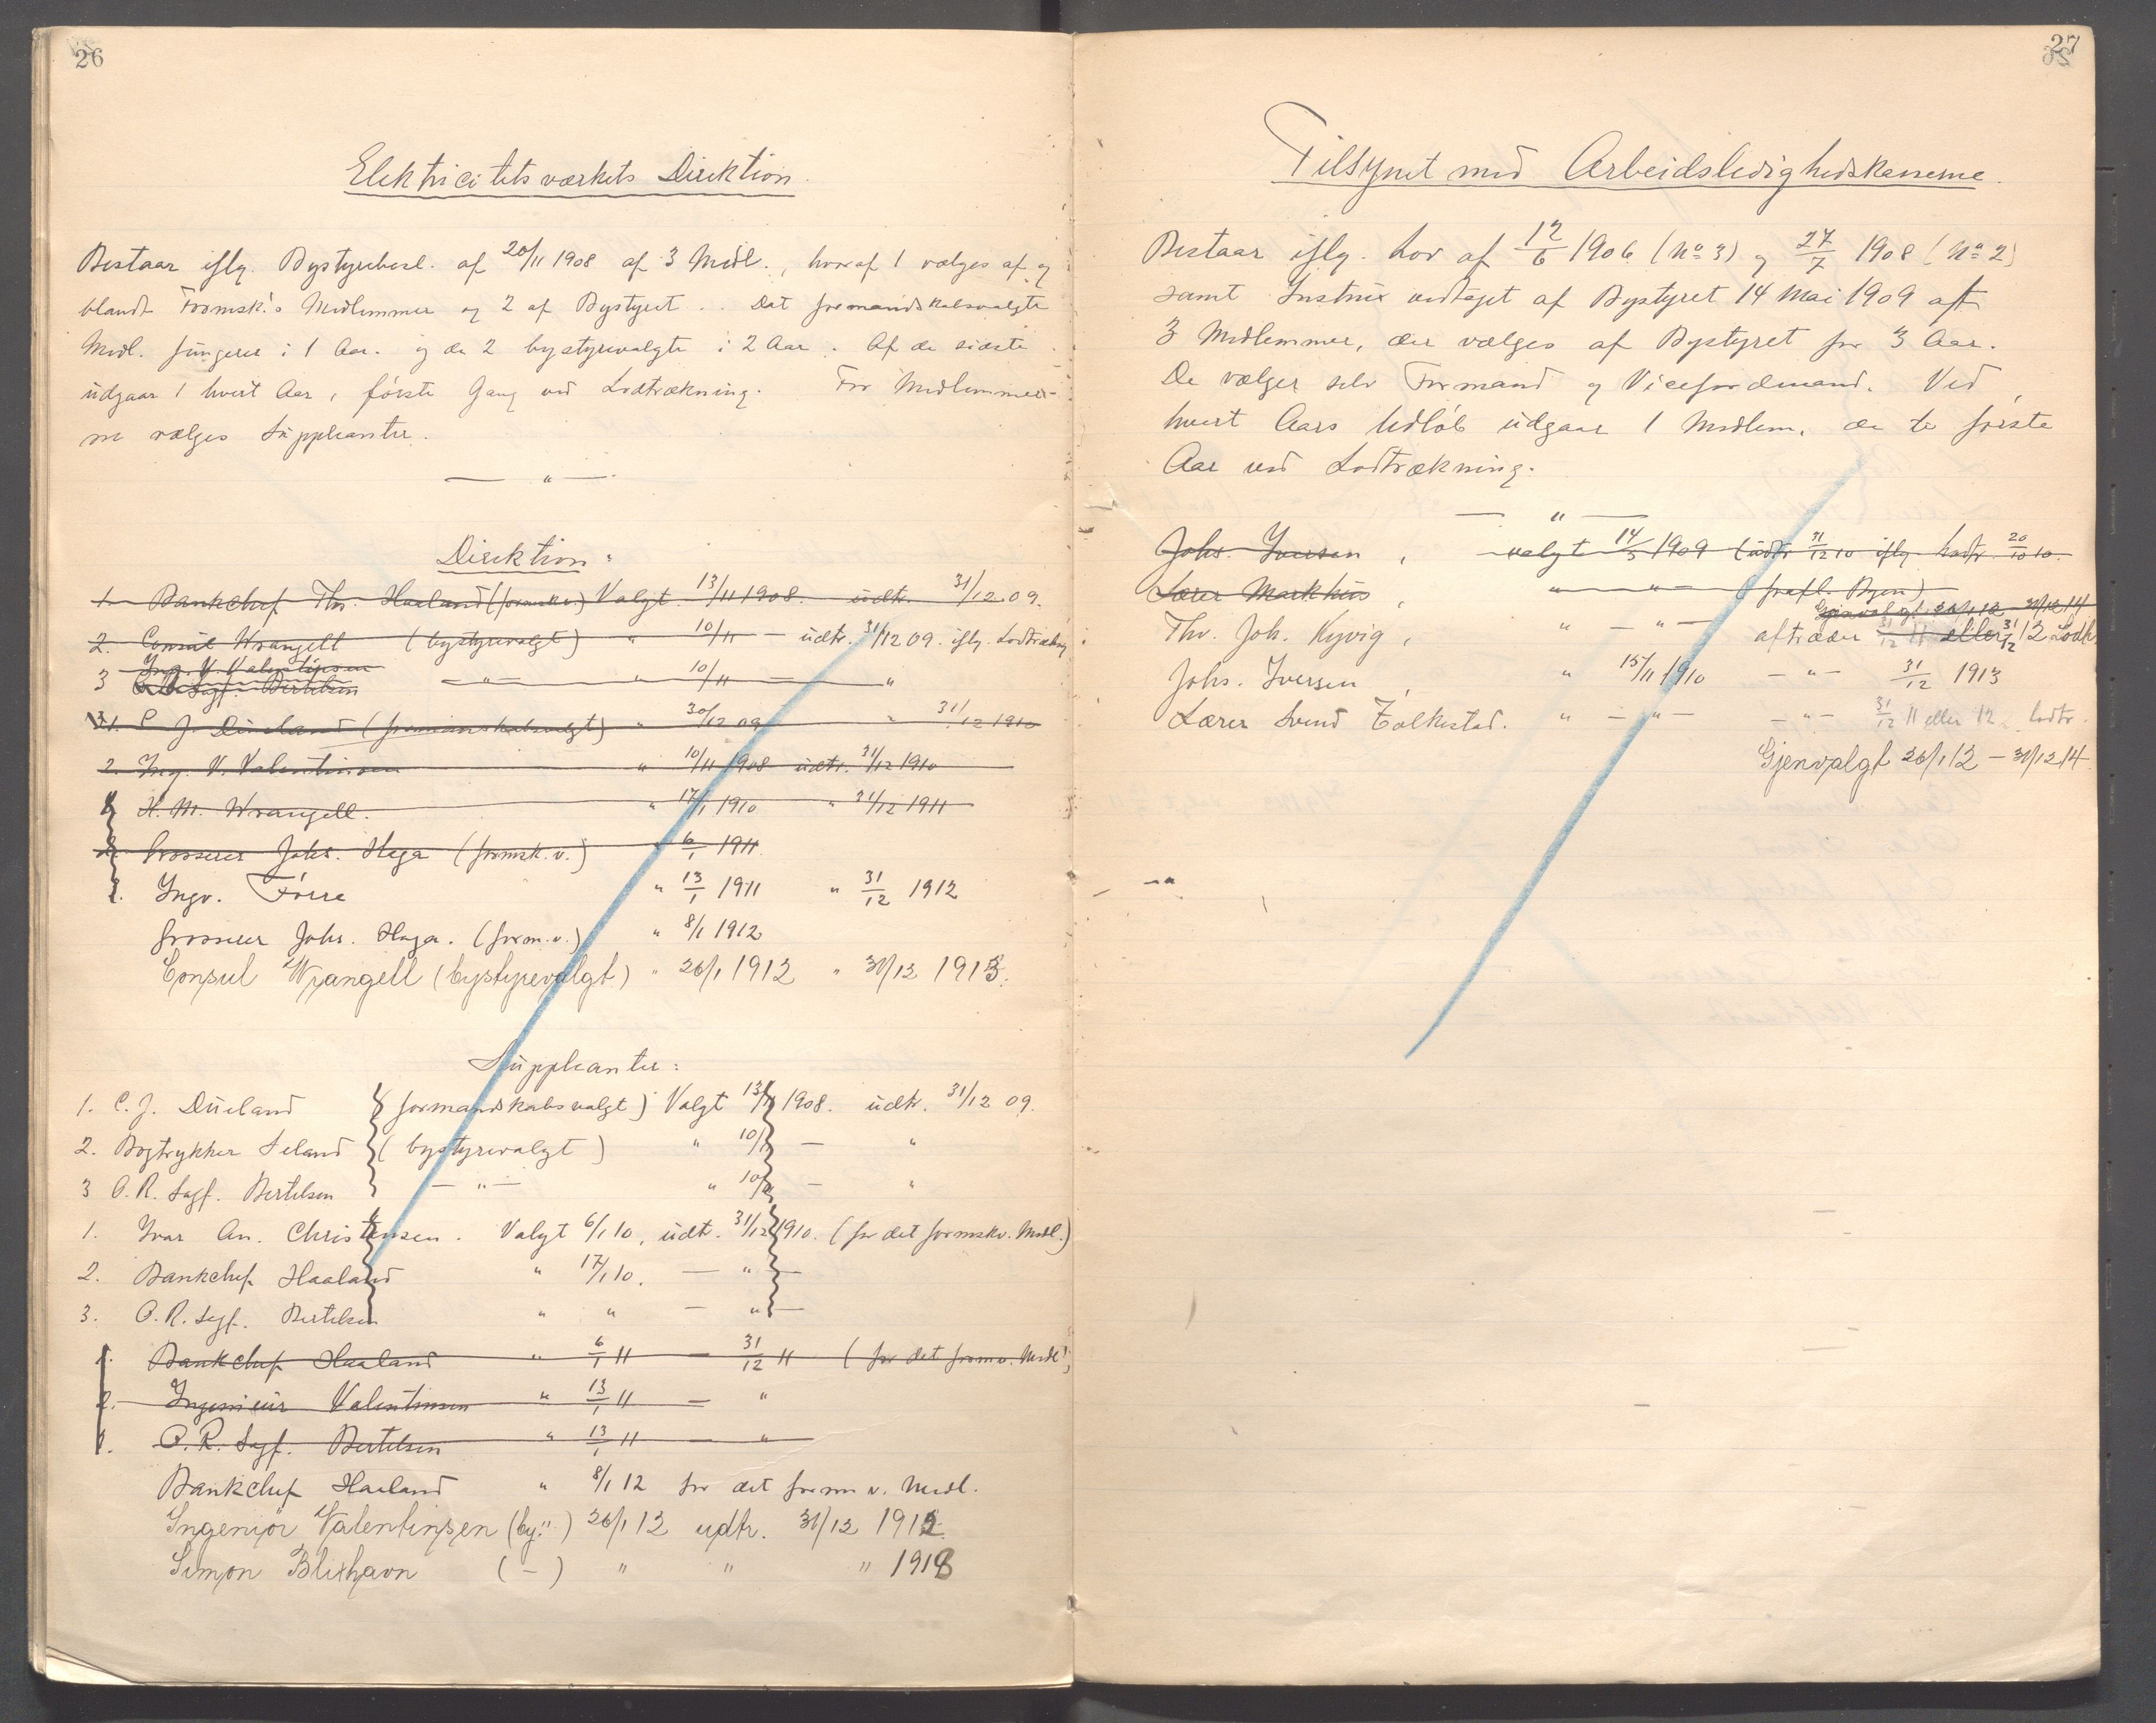 26
Elektricitetsværkets Direktion.
Bestaar iflg. Bystyrebesl. af 20/11 1908 af 3 Medl., hvoraf 1 vælges af og
blandt Formsk.'s Medlemmer og 2 af Bystyret. Det formandskabsvalgte
Medl. fungerer i 1 Aar. og de 2 bystyrevalgte i 2 Aar. Af de sidste
udgaar 1 hvert Aar, første Gang ved Lodtrækning. For Medlemmer-
ne vælges Suppleanter.
— " —
Direktion:
1. Bankchef Th. Haaland (formskv.) Valgt 13/11 1908. udtr. 31/12 09.
2. Consul Wrangell (bystyrevalgt) " 10/11 — udtr. 31/12 09. iflg. Lodtrækng
Ing. V. Valentinsen
3 O. R. Sagf. Bertelsen — " — " 10/11 — "
1. C. J. Dueland (formanskabsvalgt) " 30/12 09 " 31/12 1910
2. Ing. V. Valentinsen " 10/11 1908 udtr. 31/12 1910
H. M. Wrangell. " 17/1 1910 " 31/12 1911
2. Grosserer Johs. Haga (formsk.v.) " 6/1 1911
Ingv. Førre " 13/1 1911 " 31/12 1912
Grosserer Johs. Haga. (form.v.) " 8/1 1912
Consul Wrangell (bystyrevalgt) " 26/1 1912 " 31/12 1913.
Suppleanter:
1. C. J. Dueland (formandskabsvalgt) Valgt 13/11 1908. udtr. 31/12 09.
2. Bogtrykker Seland (bystyrevalgt) " 10/11 — "
3 O. R. Sagf. Bertelsen — " — " 10/11 — "
1. Ivar An. Christensen. Valgt 6/1 10, udtr. 31/12 1910. (for det formskv. Medl.)
2. Bankchef Haaland " 17/1 10. — " —
3. O. R. Sagf. Bertelsen " " — " —
1. Bankchef Haaland " 6/1 11 — 31/12 11 (for det formv. Medl.)
2. Ingeniør Valentinsen " 13/1 11 — "
O. R. Sagf. Bertelsen " 13/1 11 — "
Bankchef Haaland " 8/1 12 for det form v. Medl.
Ingeniør Valentinsen (by.") 26/1 12 udtr. 31/12 1912.
Simon Blixhavn ( — ) " " " 1913
27
Tilsynet med Arbeidsledighedskasserne.
Bestaar iflg. Lov af 12/6 1906 (No 3) og 27/7 1908 (No 2)
samt Instrux vedtaget af Bystyret 14 Mai 1909 aft
3 Medlemmer, der vælges af Bystyret for 3 Aar.
De vælger selv Formand og Viceformand. Ved
hvert Aars Udløb udgaar 1 Medlem, de to første
Aar ved Lodtrækning.
— " —
Johs. Iversen, valgt 14/5 1909 (udtr 31/12 10 iflg. Lodtr. 20/10 10.
Lærer Markhus, " — " — (frafl. Byen)
Gjenvalgt 26/1 12 — 31/12 14
Thv. Joh. Kyvig, " — " — aftræder 31/12 11 eller 31/12 12 Lodtr.
Johs. Iversen, " 15/11 1910 — " — 31/12 1913
Lærer Svend Tolkestad. " — " — — " — 31/12 11 eller 12 Lodtr.
Gjenvalgt 26/1 12 — 31/12 14